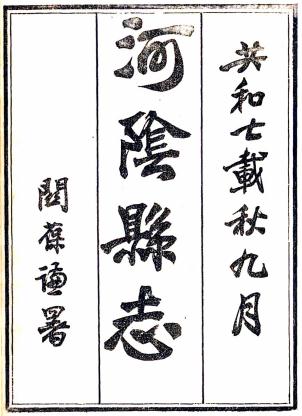 共和七載秋九月
河陰縣志
閻葆謙署